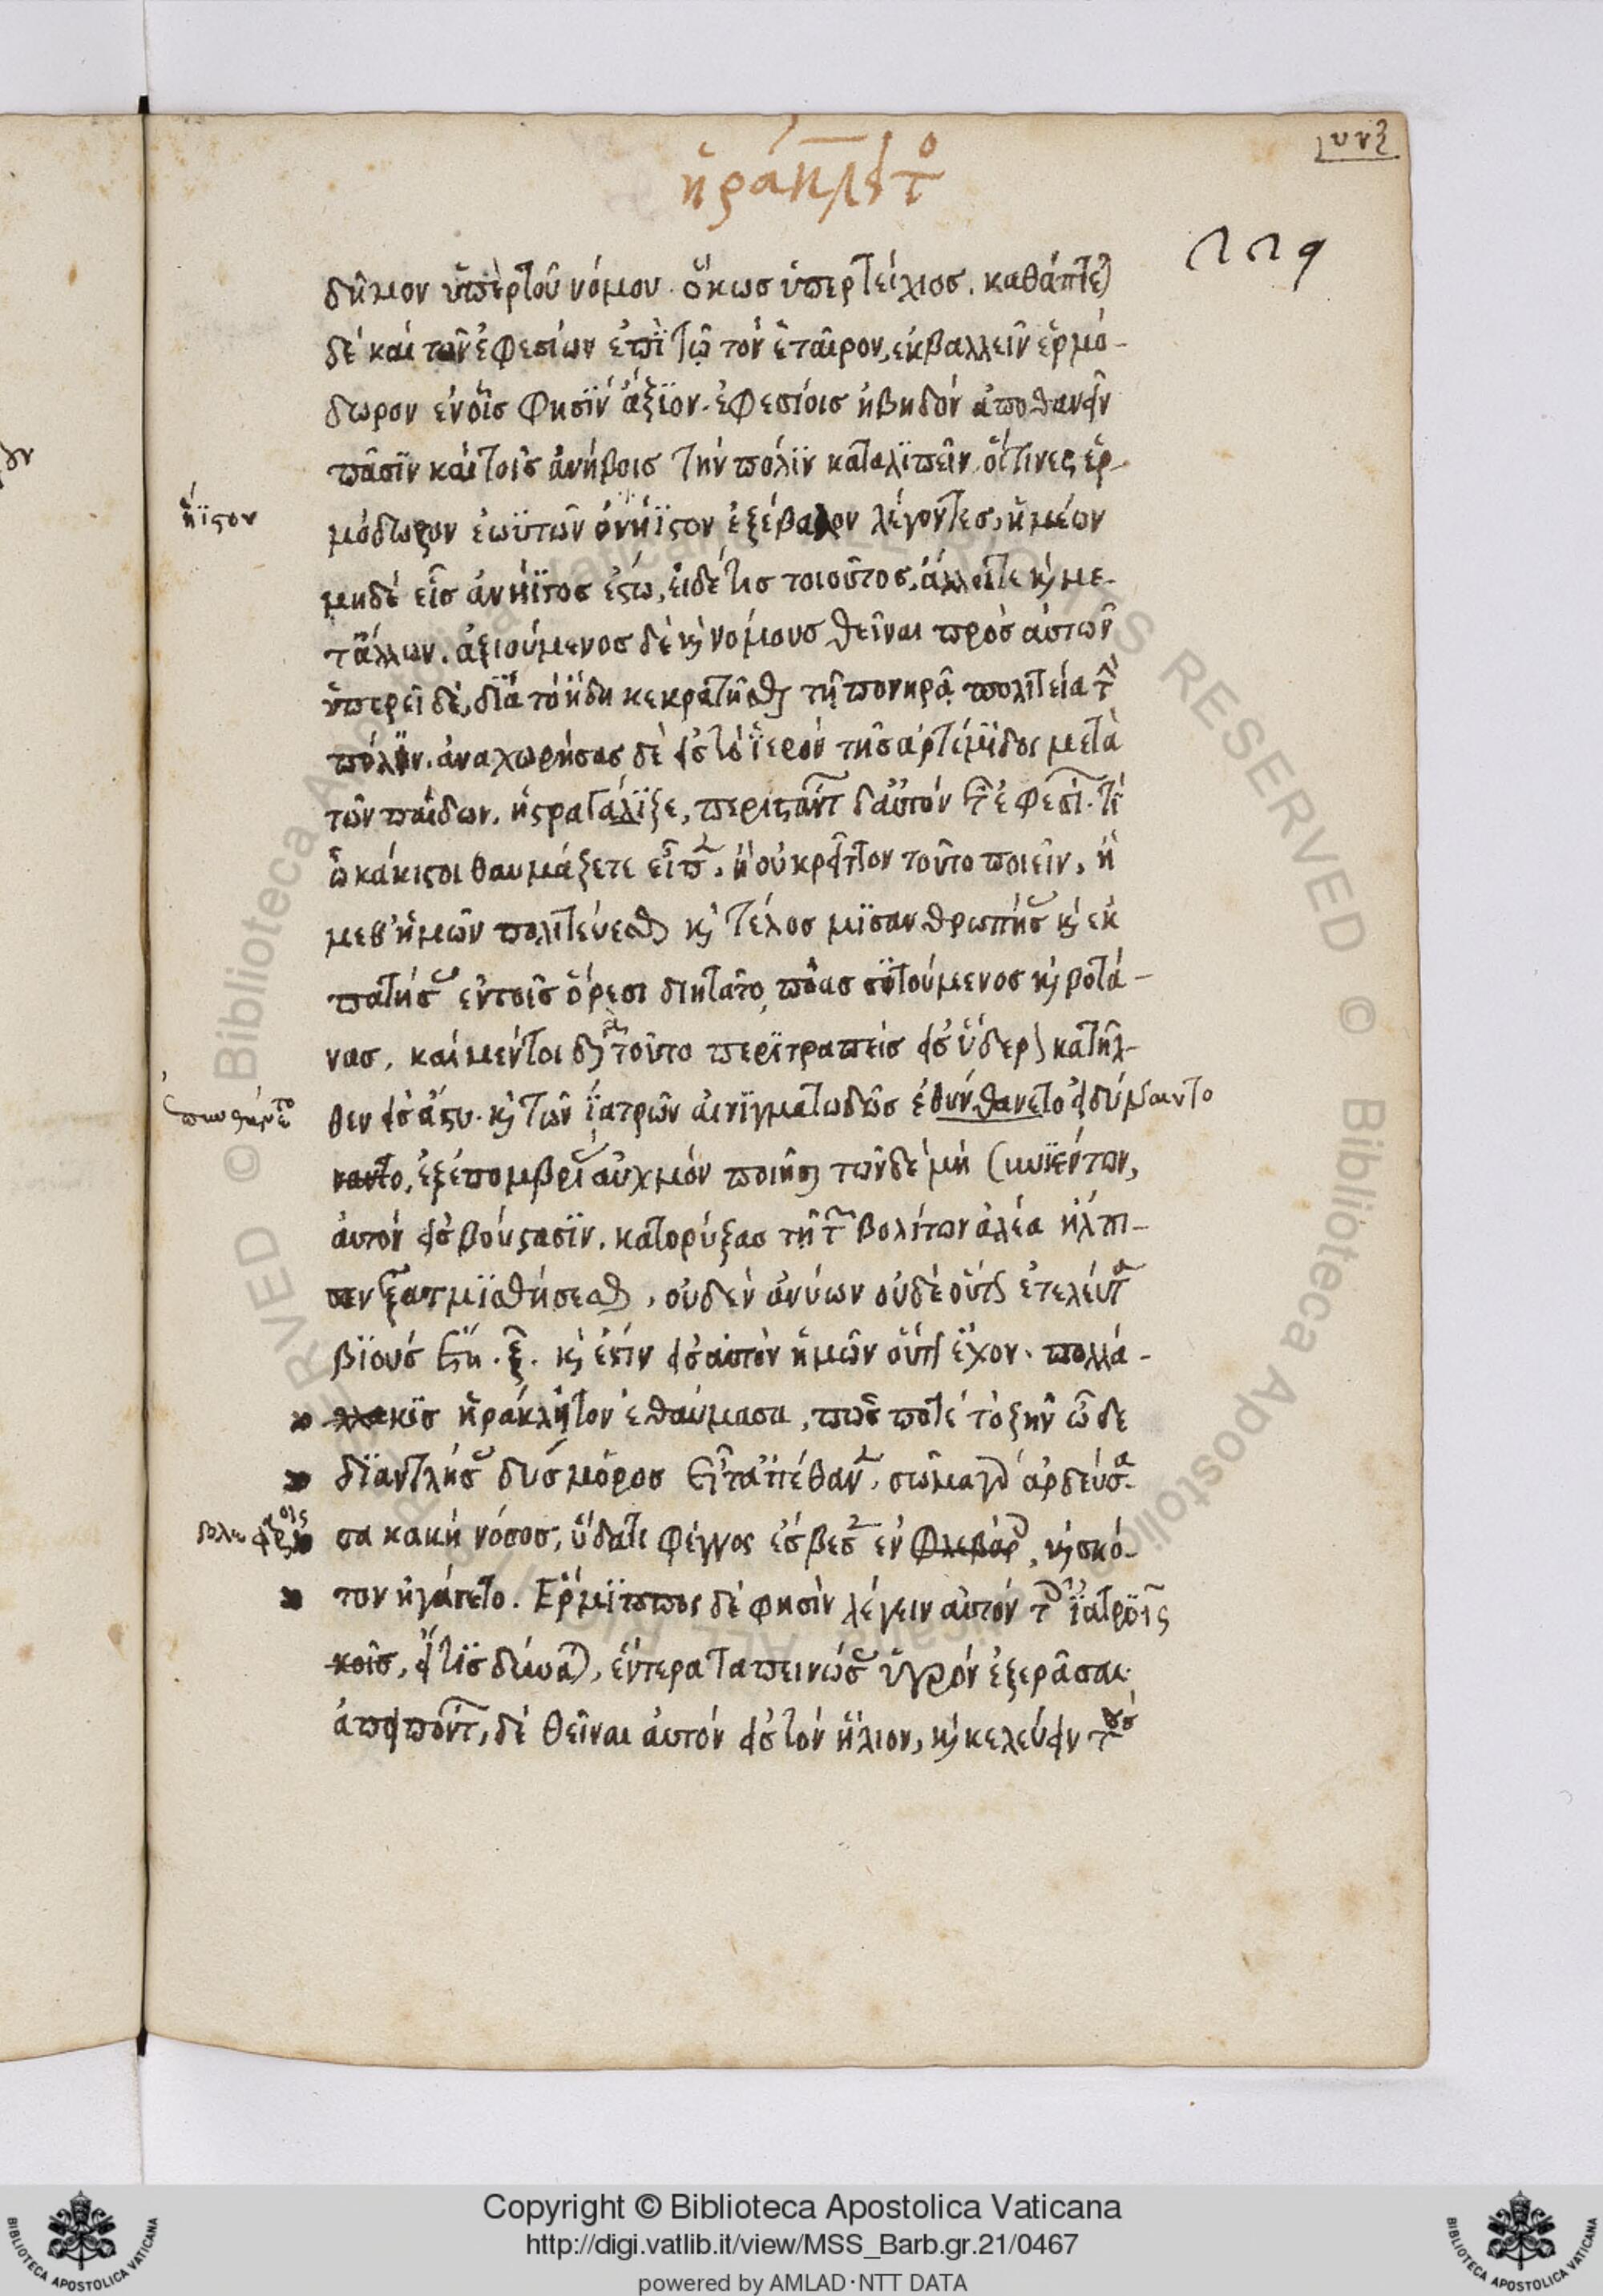 ἡράκλειτος
υνζ
229
δῆμον ὑπὲρ τοῦ νόμου. ὅκως ὑπὲρ τείχεος. καθάπτεται
δὲ καὶ τῶν ἐφεσίων ἐπὶ τῷ τὸν ἑταῖρον, ἐκβαλλεῖν ἑρμό-
δωρον ἐν οἷς φησϊν ἄξϊον. ἐφεσίοις ἡβηδὸν ἀποθανεῖν
πᾶσϊν καὶ τοῖς ἀνήβοις τὴν πόλϊν καταλϊπεῖν οἵτινες ἑρ-
ἥϊστον
μόδωρον ἑωϋτῶν ὀνήϊστον ἐξέβαλον λέγοντες, ἡμέων
μηδὲ εἷς ὀνήϊστος ἔστω, εἰ δέ τις τοιοῦτος, ἄλλῃ τε καὶ με-
τ᾽ ἄλλων. ἀξιούμενος δὲ καὶ νόμους θεῖναι πρὸς αὐτῶν
ὑπερεῖδε, δϊὰ τὸ ἤδη κεκρατῆσθαι τῇ πονηρᾷ πολιτείᾳ τὴν
πόλϊν. ἀναχωρήσας δὲ εἰς τὸ ἱερὸν τῆς ἀρτέμϊδος μετὰ
τῶν παίδων. ἠστραγάλϊζε, περιστάντων δ᾽ αὐτὸν τῶν ἐφεσίων. τί
ὦ κάκιστοι θαυμάζετε εἶπεν, ἢ οὐ κρεῖττον τοῦτο ποιεῖν, ἢ
μεθ᾽ ἡμῶν πολιτεύεσθαι καὶ τέλος μϊσανθρωπήσας καὶ ἐκ
πατήσας ἐν τοῖς ὄρεσι διητᾶτο, πόας σϊτούμενος καὶ βοτά-
νας, καὶ μέντοι διὰ τοῦτο περϊτραπεὶς εἰς ὕδερον κατῆλ-
πυνθάνετο
θεν εἰς ἄστυ. καὶ τῶν ἰατρῶν αἰνϊγματωδῶς ἐθυνθάνετο εἰ δύναιντο
ναντο, ἐξ ἐπομβρίας αὐχμὸν ποιῆσαι τῶν δὲ μὴ συνϊέντων,
αὑτὸν εἰς βούστασϊν. κατορύξας τῇ τῶν βολίτων ἀλέα ἤλπι-
σεν ἐξατμϊσθήσεσθαι, οὐδὲν ἀνύων οὐδὲ οὕτως ἐτελεύτα
βϊοὺς ἔτη. ξ. καὶ ἔστιν εἰς αὐτὸν ἡμῶν οὕτως ἔχον. πολλά-
κϊς ἡράκλητον ἐθαύμασα, πῶς ποτὲ τὸ ζῆν ὧδε
δϊαντλήσας δύσμορος εἶτ᾽ ἀπέθανεν, σῶμα γὰρ ἀρδεύσα-
βλεφάροις
σα κακὴ νόσος, ὕδατι φέγγος ἔσβεσεν ἐν φλεβάροις, καὶ σκό-
τον ἠγάγετο. Ἕρμϊππος δὲ φησὶν λέγειν αὐτὸν τοῖς ἰατροῖς
κοῖς, εἴ τϊς δύναται, ἔντερα ταπεινώσας ὑγρὸν ἐξερᾶσαι.
ἀπειπόντων, δὲ θεῖναι αὑτὸν εἰς τὸν ἥλιον, καὶ κελεύειν τοὺς
Copyright © Biblioteca Apostolica Vaticana
http://digi.vatlib.it/view/MSS_Barb.gr.21/0467
powered by AMLAD·NTT DATA
BIBLIOTECA APOSTOLICA VATICANA
BIBLIOTECA APOSTOLICA VATICANA